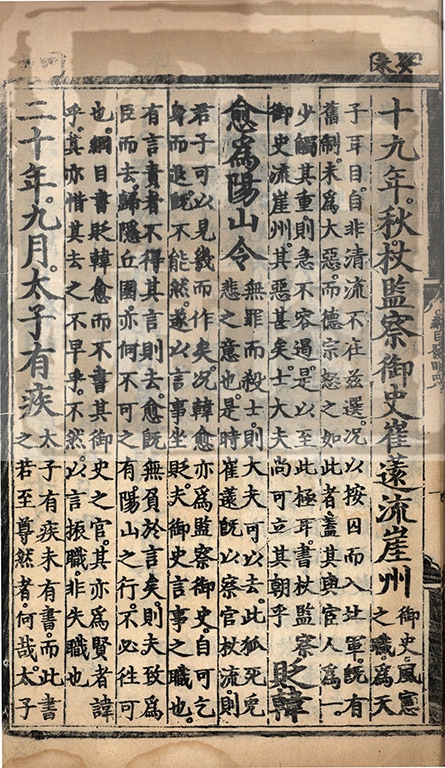 癸未
十九年。秋。杖監察御史崔薳流崖州
御史。風憲
之職。爲天
子耳目。自非清流。不在茲選。况以按囚而入北軍。旣有
舊制。未爲大惡。而德宗怒之如此者。蓋其與宦人爲一。
少觸其重。則急不容遏。是以至此極耳。書杖監察
御史流崖州。其惡甚矣。士大夫尚可立其朝乎
貶韓
愈爲陽山令
無罪而殺士。則大夫可以去。此狐死兔
悲之意也。是時崔薳旣以察官杖流。則
君子可以見幾而作矣。况韓愈亦爲監察御史。自可乞
身而退。旣不能然。遂以言事坐貶。夫御史言事之職也。
有言責者不得其言則去。愈旣無負於言矣。則夫致爲
臣而去。歸隱丘園。亦何不可之有。陽山之行。不必往可
也。綱目書貶韓愈而不書其御史之官。其亦爲賢者諱
乎。其亦惜其去之不早乎。不然。以言振職。非失職也
二十年。九月。太子有疾
太子有疾未有書。而此書
之若至尊然者。何哉。太子